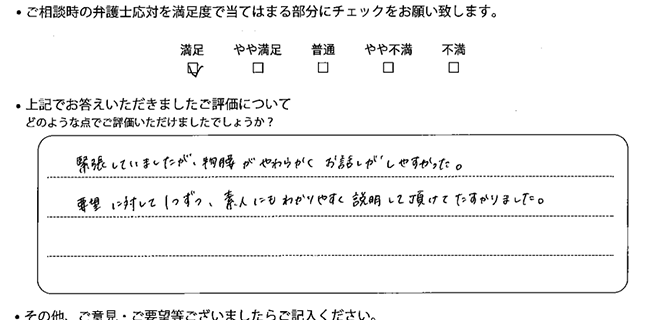 • ご相談時の弁護士応対を満足度で当てはまる部分にチェックをお願い致します。
満足 やや満足 普通 やや不満 不満
• 上記でお答えいただきましたご評価について
どのような点でご評価いただけましたでしょうか？
緊張していましたが、物腰がやわらかくお話しがしやすかった。
要望に対して1つずつ、素人にもわかりやすく説明して頂けてたすかりました。
• その他、ご意見・ご要望等ございましたらご記入ください。